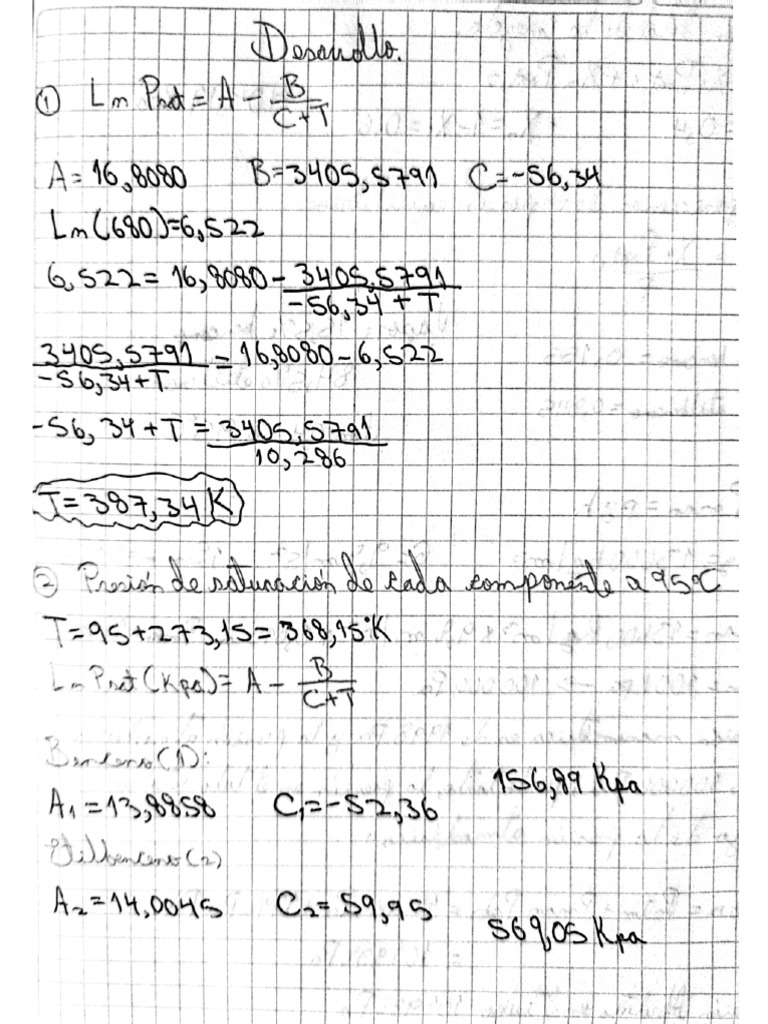 Desarrollo.
① Ln Psat = A - B/(C+T)
A = 16,8080 B = 3405,5791 C = -56,34
Ln(680) = 6,522
6,522 = 16,8080 - 3405,5791/(-56,34 + T)
3405,5791/(-56,34+T) = 16,8080 - 6,522
-56,34 + T = 3405,5791/10,286
T = 387,34 K
② Presión de saturación de cada componente a 95°C
T = 95 + 273,15 = 368,15°K
Ln Psat (Kpa) = A - B/(C+T)
Benceno (1):
156,89 Kpa
A₁ = 13,8858 C₁ = -52,36
Etilbenceno (2)
A₂ = 14,0045 C₂ = 59,95
569,05 Kpa